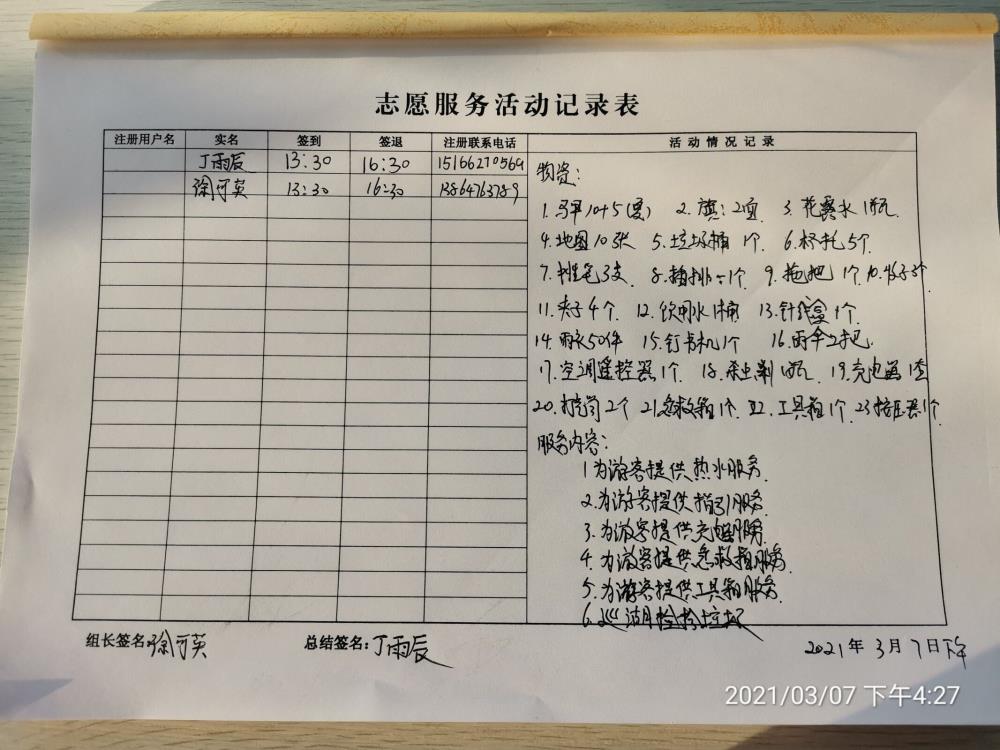 志愿服务活动记录表
注册用户名 实名 签到 签退 注册联系电话 活动情况记录
丁雨辰 13:30 16:30 15166270569
徐可英 13:30 16:30 13864763789
物资:
1. 马甲10+5(夏) 2. 旗:2面 3. 花露水1瓶
4. 地图10张 5. 垃圾桶1个 6. 杯托5个
7. 3支 8. 插排 1个 9. 拖把1个 10.
11. 夹子4个 12. 饮用水1桶 13. 针线盒1个
14. 雨衣50件 15. 钉书机1个 16. 雨伞2把
17. 空调遥控器1个 18. 杀虫剂1瓶 19. 充电器1套
20. 2个 21. 急救箱1个 22. 工具箱1个 23 1个
服务内容:
1 为游客提供热水服务
2. 为游客提供指引服务.
3. 为游客提供充电服务.
4. 为游客提供急救箱服务.
5. 为游客提供工具箱服务.
6. 巡湖捡拾垃圾
组长签名 徐可英 总结签名: 丁雨辰 2021年3月7日下午
2021/03/07 下午4:27